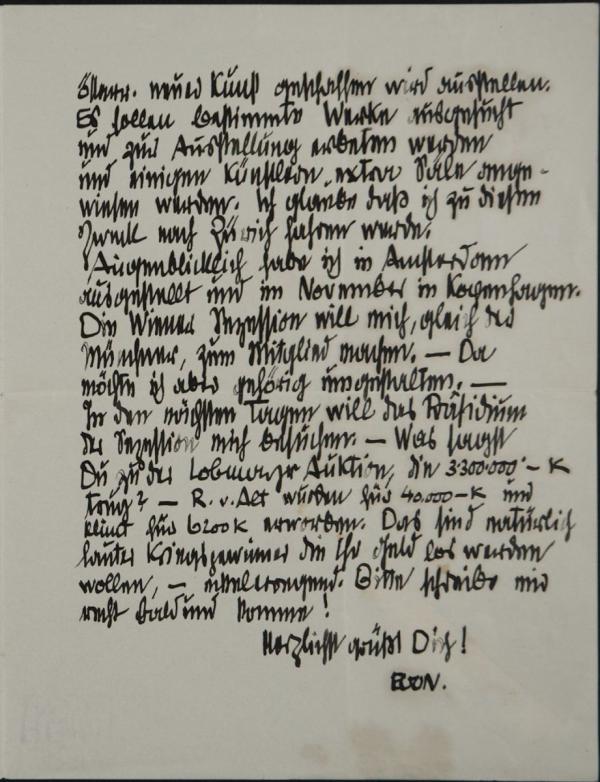 österr. neuer Kunst geschaffen wird ausstellen.
Es sollen bestimmte Werke ausgesucht
und zur Ausstellung erbeten werden
und einigen Künstlern extra Säle ange-
wiesen werden. Ich glaube daß ich zu diesem
Zweck nach Zürich fahren werde.
Augenblicklich habe ich in Amsterdam
ausgestellt und im November in Kopenhagen.
Die Wiener Sezession will mich, gleich der
Münchner, zum Mitglied machen. — Da
möchte ich aber gehörig umgestalten. —
In den nächsten Tagen will das Präsidium
der Sezession mich besuchen. — Was sagst
Du zu der Lobmayr Auktion, die 3·300·000·– K
trug? — R. v. Alt wurden für 40.000 – K und
Klimt für 6200 K erworben. Das sind natürlich
lauter Kriegsgewinner die Ihr Geld los werden
wollen, – ekelerregend. Bitte schreibe mir
recht bald und komme!
Herzlichst grüßt Dich!
EGON.